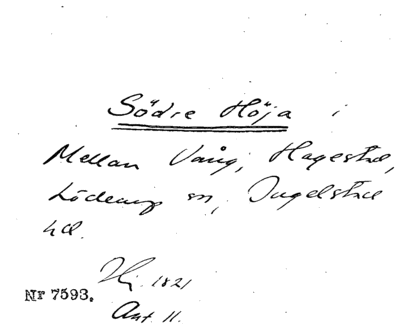 Södre Höja i
Mellan Vång, Hagestad,
Löderup sn, Ingelstad
hd.
Hj. 1821
Nr 7593.
Akt 11.